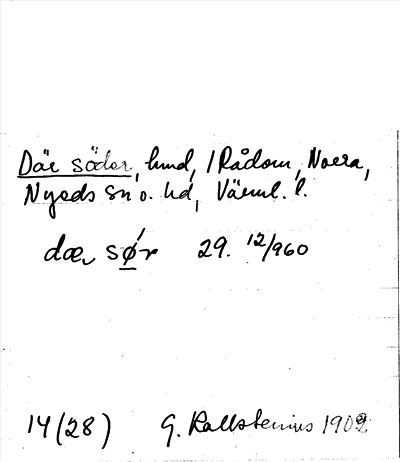 Där söder, hmd, / Rådom, Norra,
Nyeds sn o. hd, Värml. l.
dæ, sǿr 29. 12/960
14 (28) G. Kallstenius 1902